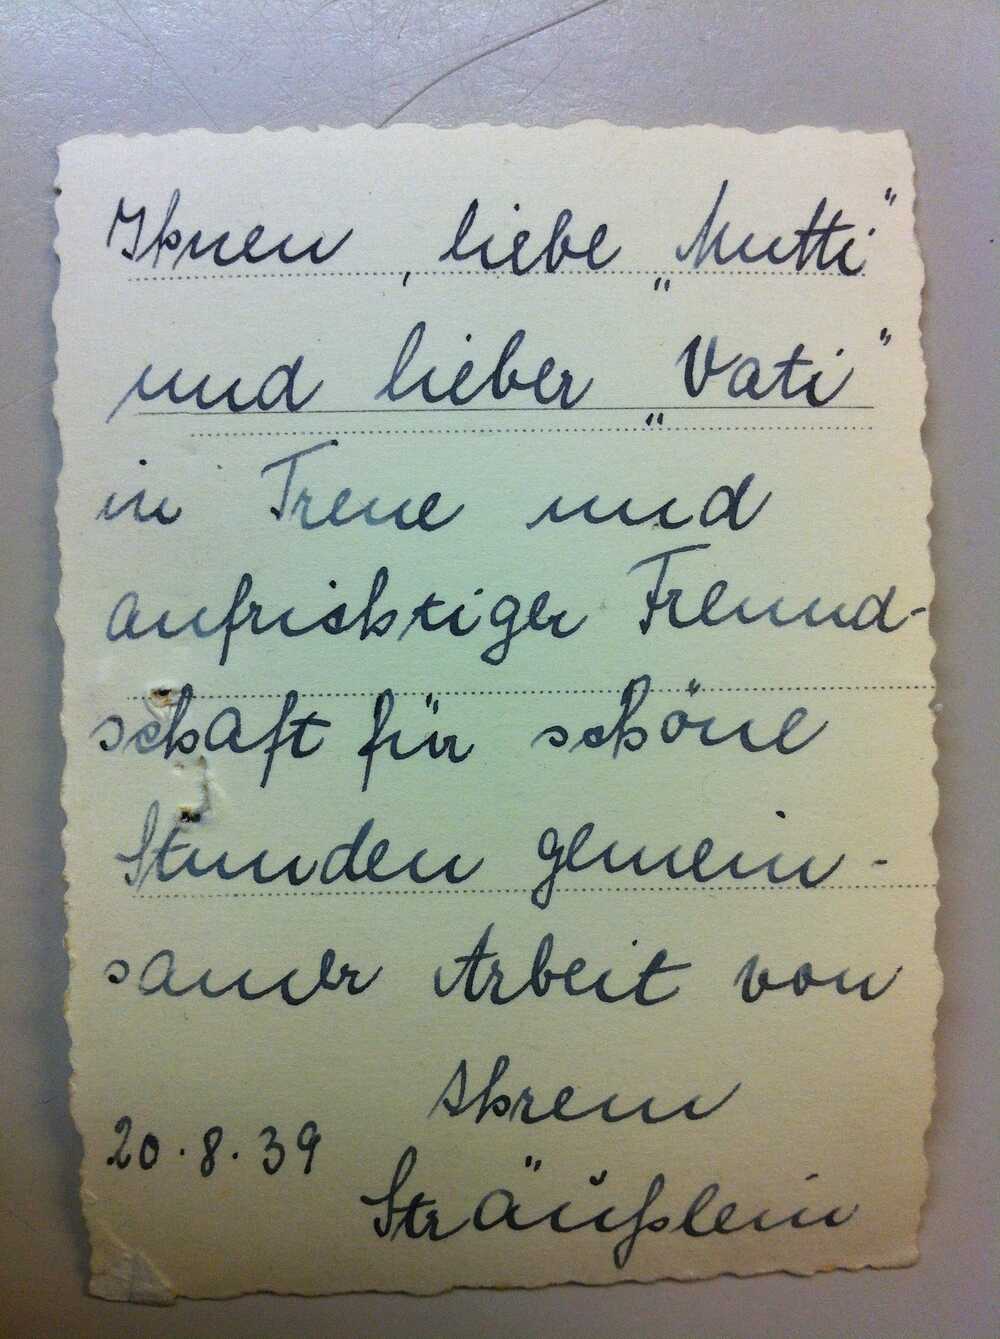 Ihnen, liebe „Mutti"
und lieber „Vati"
in Treue und
aufrichtiger Freund-
schaft für schöne
Stunden gemein-
samer Arbeit von
Ihrem
20.8.39
Sträußlein